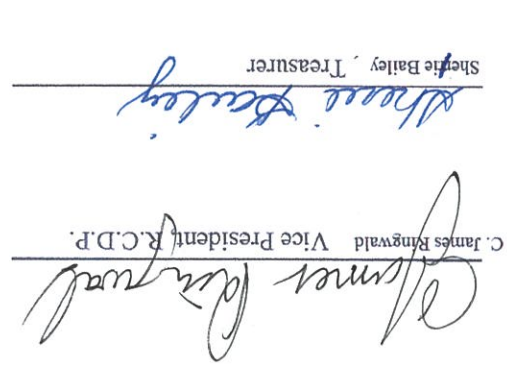 C James Ringwald
C. James Ringwald Vice President, R.C.D.P.
Sherri Bailey
Sherrie Bailey , Treasurer